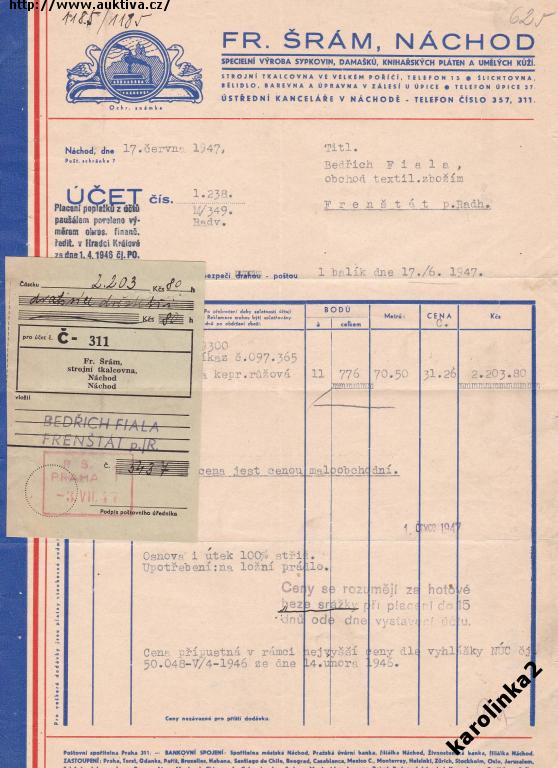 http://www.auktiva.cz/
1185/1185
625
FR. ŠRÁM, NÁCHOD
SPECIELNÍ VÝROBA SYPKOVIN, DAMAŠKŮ, KNIHAŘSKÝCH PLÁTEN A UMĚLÝCH KŮŽÍ.
STROJNÍ TKALCOVNA VE VELKÉM POŘÍČÍ, TELEFON 15 • ŠLICHTOVNA,
BĚLIDLO, BAREVNA A ÚPRAVNA V ZÁLESÍ U ÚPICE • TELEFON ÚPICE 57.
ÚSTŘEDNÍ KANCELÁŘE V NÁCHODĚ - TELEFON ČÍSLO 357, 311.
Ochr. známka
Náchod, dne 17.června 1947,
Pošt. schránka 7
Titl.
Bedřich Fiala,
obchod textil.zbožím
Frenštát p.Radh.
ÚČET čís. 1.238.
M/349.
Radv.
Placení poplatků z účtů
paušálem povoleno vý-
měrem okres. finanč.
ředit. v Hradci Králové
za dne 1. 4. 1946 čj. PO.
bezpečí drahou - poštou 1 balík dne 17./6 1947.
Po překročení doby splatnosti účtuji
Reklamace mohou býti uplatňovány
dnů po obdržení zboží.
BODŮ
à celkem
Metrů:
CENA
Kčs
9300
íkaz č.097.365
a kepr.růžová 11 776 70.50 31.26 2.203.80
cena jest cenou maloobchodní.
1. ČERVCE 1947
Osnova i útek 100% stříž.
Upotřebení:na ložní prádlo.
Ceny se rozumějí za hotové
beze srážky při placení do 15
dnů ode dne vystavení účtu.
Cena přípustná v rámci nejvyšší ceny dle vyhlášky NÚC čj.
50.048-V/4-1946 ze dne 14.února 1946.
Ceny nezávazné pro příští dodávku.
Částku 2.203 Kčs 80 h
Kčs 80 h
pro účet č. Č- 311
Fr. Šrám,
strojní tkalcovna,
Náchod
Náchod
vložil
BEDŘICH FIALA
FRENŠTÁT p./R.
č. 3457
P. S.
PRAHA
-3.VII.47
Podpis poštovního úředníka
Poštovní spořitelna Praha 311. — BANKOVNÍ SPOJENÍ: Spořitelna městská Náchod, Pražská úvěrní banka, filiálka Náchod, Živnostenská banka, filiálka Náchod.
ZASTOUPENÍ: Praha, Torst, Odanka, Paříž, Bruselles, Habana, Santiago de Chile, Beograd, Casablanca, Mexico C., Monterrey, Helsinki, Zürich, Stockholm, Oslo, Jerusalem,
karolinka2